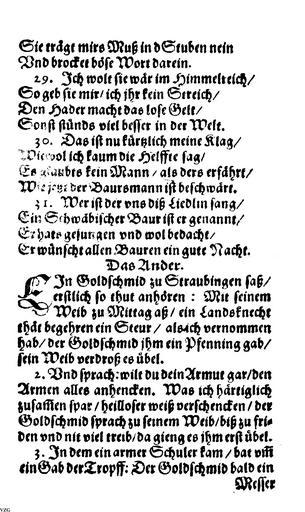 Sie trägt mirs Muß in d Stuben nein
Vnd brocket böse Wort darein.
29. Ich wolt sie wär im Himmelreich/
So geb sie mir/ ich jhr kein Streich/
Den Hader macht das lose Gelt/
Sonst stünds viel besser in der Welt.
30. Das ist nu kürtzlich meine Klag/
Wiewol ich kaum die Helffte sag/
Es glaubts kein Mann/ als ders erfährt/
Wie jetzt der Baursmann ist beschwärt.
31. Wer ist der vns diß Liedlin sang/
Ein Schwäbischer Baur ist er genannt/
Er hats gesungen vnd wol bedacht/
Er wünscht allen Bauren ein gute Nacht.
Das Ander.
EIn Goldschmid zu Straubingen saß/
erstlich so thut anhören: Mit seinem
Weib zu Mittag aß/ ein Landsknecht
thät begehren ein Steur/ als ich vernommen
hab/ der Goldschmid jhm ein Pfenning gab/
sein Weib verdroß es übel.
2. Vnd sprach: wilt du dein Armut gar/ den
Armen alles anhencken. Was ich härtiglich
zusam̃en spar/ heilloser weiß verschencken/ der
Goldschmid sprach zu seinem Weib/ biß zu fri-
den vnd nit viel treib/ da gieng es jhm erst übel.
3. In dem ein armer Schuler kam/ bat vm̃
ein Gab der Tropff: Der Goldschmid bald ein
Messer
VZG